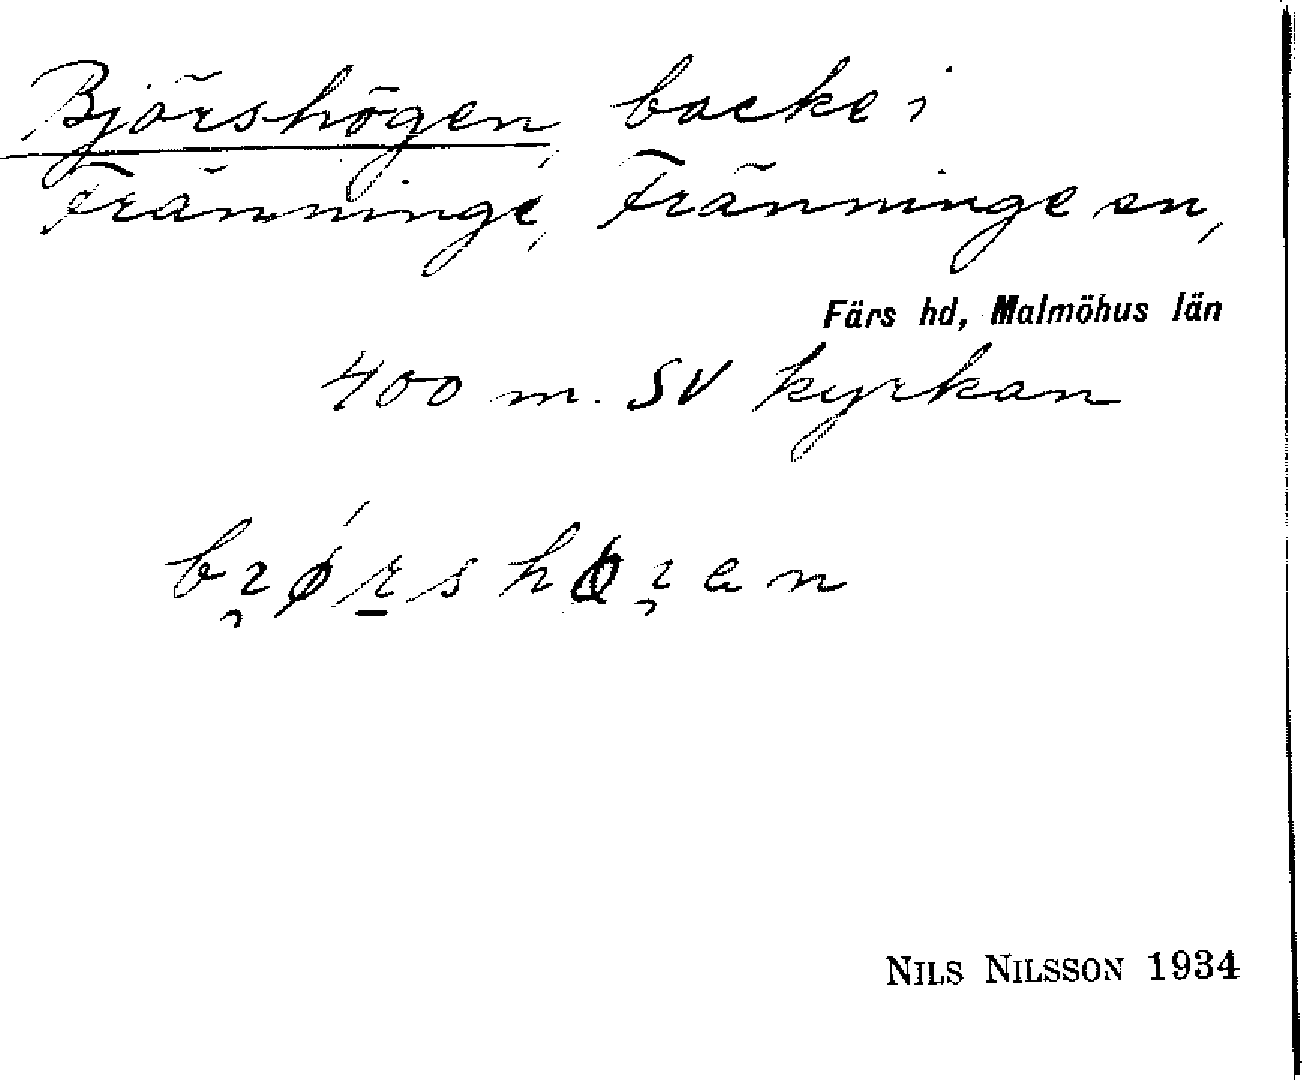 Björshögen, backe i
Tränninge, Tränninge sn,
Färs hd, Malmöhus län
400 m. SV kyrkan
NILS NILSSON 1934